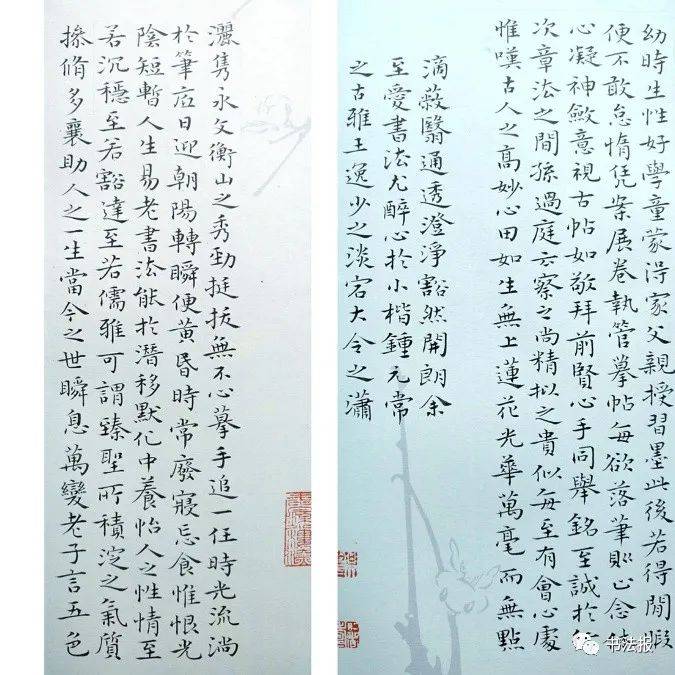 幼時生性好學童蒙淂家父親授習墨此後若得閒暇
便不敢怠惰凭案展卷執管摹帖每欲落筆則心念
心凝神斂意視古帖如敬拜前賢心手同舉銘至誠於
次章法之間孫過庭云察之尚精拟之貴似每至有會心處
惟嘆古人之高妙心田如生無上蓮花光華萬毫而無點
滴蔽翳通透澄淨豁然開朗余
至愛書法尤醉心於小楷鍾元常
之古雅王逸少之淡宕大令之瀟
灑雋永文衡山之秀勁挺拔無不心摹手追一任時光流淌
於筆底日迎朝陽轉瞬便黃昏時常廢寢忘食惟恨光
陰短暫人生易老書法能於潛移默化中養怡人之性情至
若沉穩至若豁達至若儒雅可謂臻聖所積淀之氣質
操脩多襄助人之一生當今之世瞬息萬變老子言五色
书法报